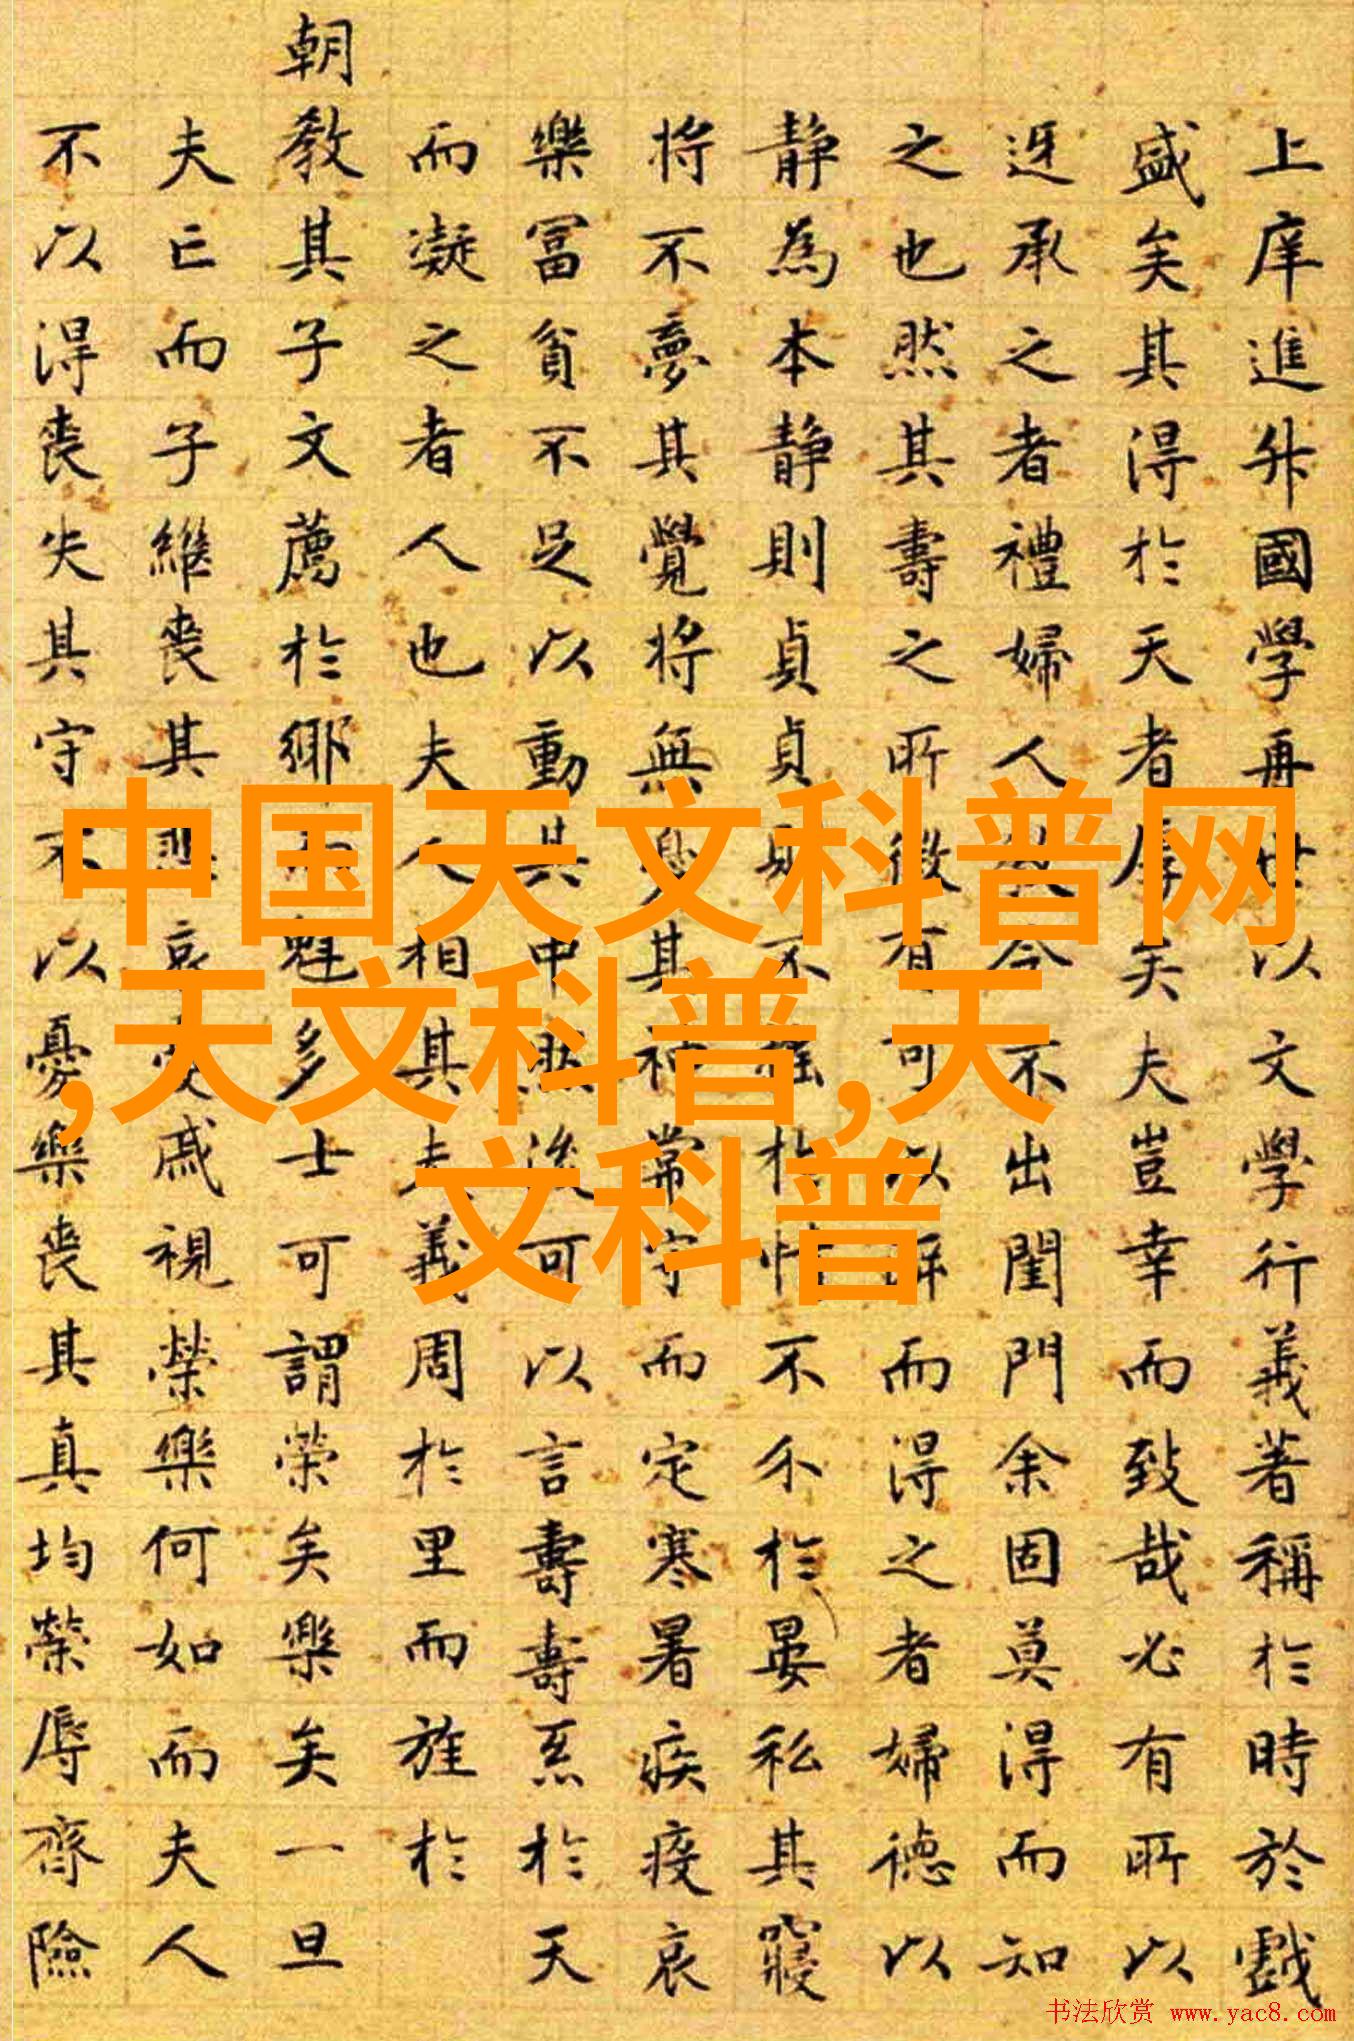 上庠進升國學再世以文學行義著稱於時於戲
盛矣其得於天者厚矣夫豈幸而致哉必有所以
迓承之者禮婦人教令不出閨門余固莫得而知
之也然其壽之所徵有可以辭而得之者婦德以
静為本静則貞貞則不搖於情不介於晏私其寢
將不夢其覺將無身其神常守而定寒暑疾疫哀
樂冨貧不足以動其中然後可以言壽壽系於天
而凝之者人也夫人相其夫義周於里而旌於
朝教其子文薦於鄉而魁多士可謂榮矣樂矣一旦
夫亡而子繼喪其悲哀憂戚視榮樂何如而夫人
不以得喪失其守不以憂樂喪其真均榮辱齊險
中国天文科普网
,天文科普,天
文科普
书法欣赏 www.yac8.com